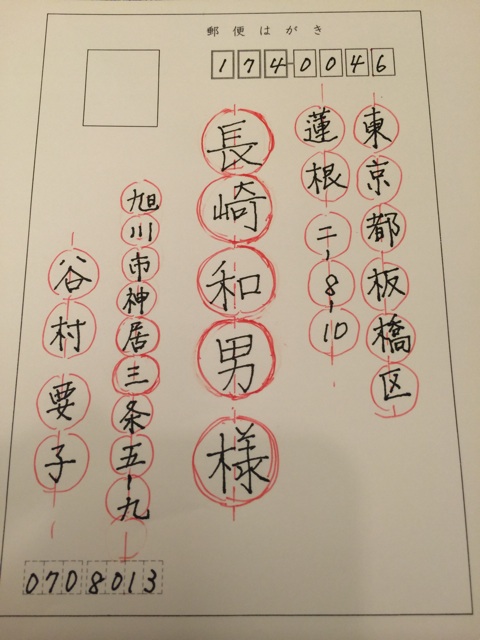 郵便はがき
174-0046
東京都板橋区
蓮根二-8-10
長崎和男様
旭川市神居三条五-九
谷村要子
0708013